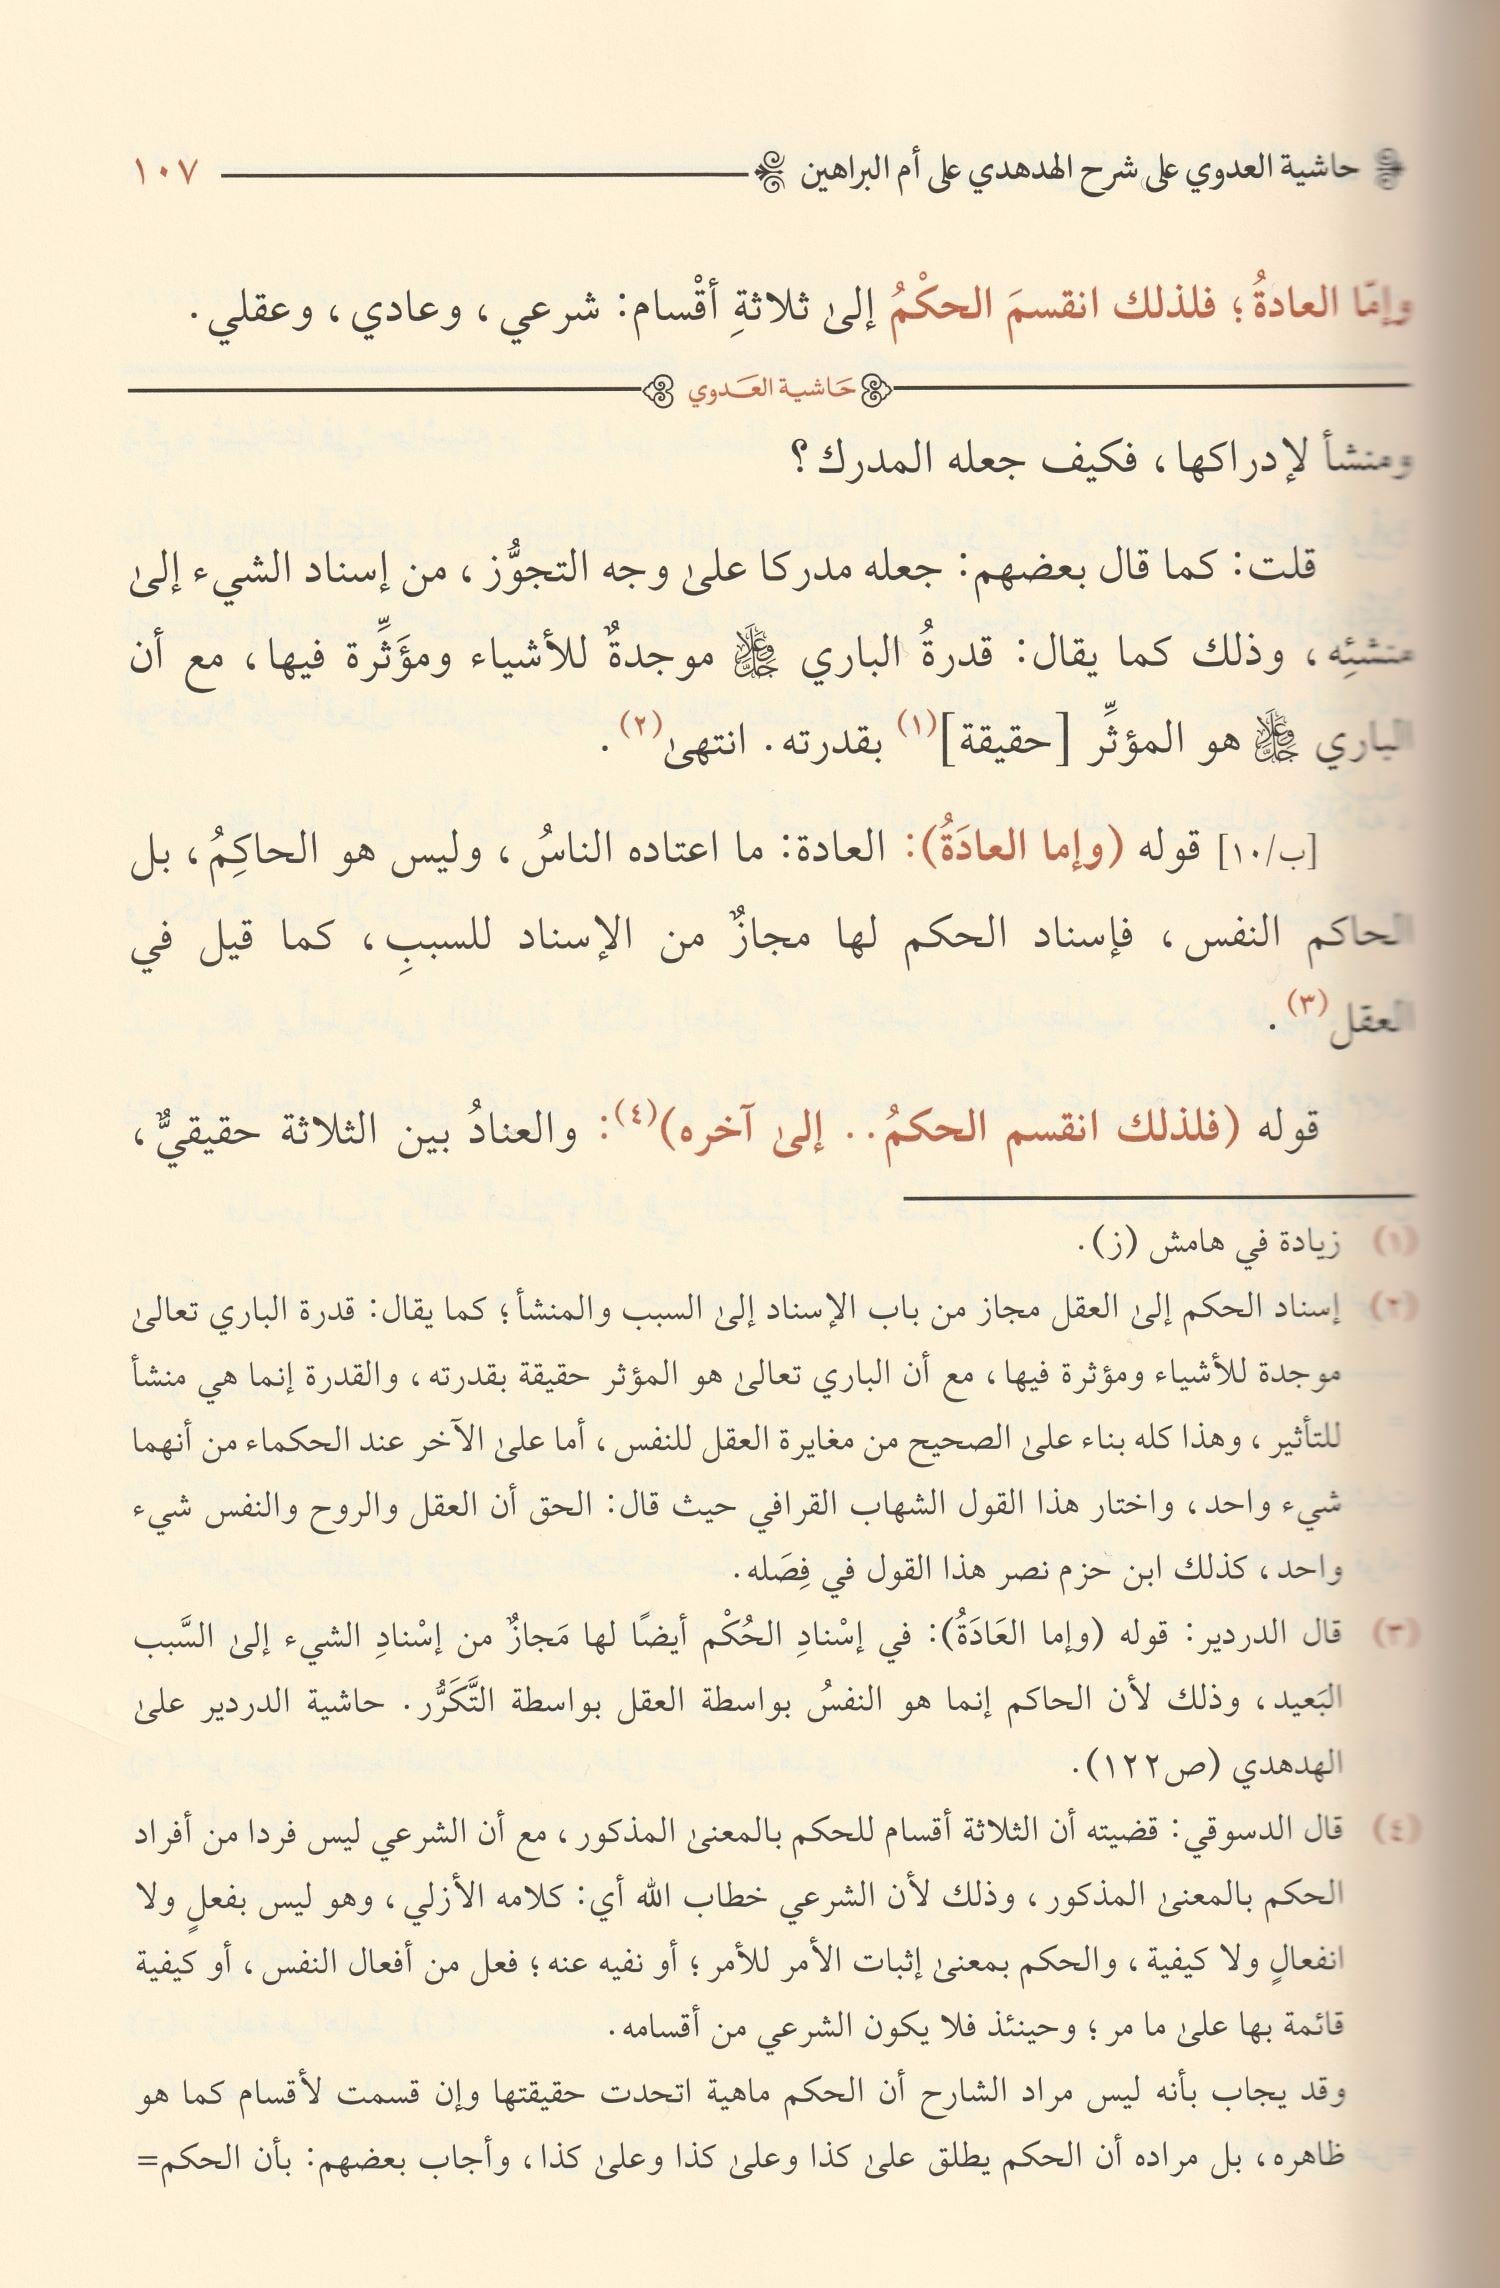 حاشية العدوي على شرح الهدهدي على أم البراهين ١٠٧
وإمّا العادةُ؛ فلذلك انقسمَ الحكْمُ إلىٰ ثلاثةِ أقْسام: شرعي، وعادي، وعقلي.
حَاشية العَدوي
ومنشأ لإدراكها، فكيف جعله المدرك؟
قلت: كما قال بعضهم: جعله مدركا علىٰ وجه التجوُّز، من إسناد الشيء إلىٰ
منشئِه، وذلك كما يقال: قدرةُ الباري جَلَّ وَعَلَا موجدةٌ للأشياء ومؤَثِّرة فيها، مع أن
الباري جَلَّ وَعَلَا هو المؤثِّر [حقيقة](١) بقدرته. انتهىٰ(٢).
[ب/١٠] قوله (وإما العادَةُ): العادة: ما اعتاده الناسُ، وليس هو الحاكِمُ، بل
الحاكم النفس، فإسناد الحكم لها مجازٌ من الإسناد للسببِ، كما قيل في
العقل(٣).
قوله (فلذلك انقسم الحكمُ.. إلىٰ آخره)(٤): والعنادُ بين الثلاثة حقيقيٌّ،
(١) زيادة في هامش (ز).
(٢) إسناد الحكم إلىٰ العقل مجاز من باب الإسناد إلىٰ السبب والمنشأ؛ كما يقال: قدرة الباري تعالىٰ
موجدة للأشياء ومؤثرة فيها، مع أن الباري تعالىٰ هو المؤثر حقيقة بقدرته، والقدرة إنما هي منشأ
للتأثير، وهذا كله بناء علىٰ الصحيح من مغايرة العقل للنفس، أما علىٰ الآخر عند الحكماء من أنهما
شيء واحد، واختار هذا القول الشهاب القرافي حيث قال: الحق أن العقل والروح والنفس شيء
واحد، كذلك ابن حزم نصر هذا القول في فِصَله.
(٣) قال الدردير: قوله (وإما العَادَةُ): في إسْنادِ الحُكْم أيضًا لها مَجازٌ من إسْنادِ الشيء إلىٰ السَّبب
البَعيد، وذلك لأن الحاكم إنما هو النفسُ بواسطة العقل بواسطة التَّكَرُّر. حاشية الدردير علىٰ
الهدهدي (ص١٢٢).
(٤) قال الدسوقي: قضيته أن الثلاثة أقسام للحكم بالمعنىٰ المذكور، مع أن الشرعي ليس فردا من أفراد
الحكم بالمعنىٰ المذكور، وذلك لأن الشرعي خطاب الله أي: كلامه الأزلي، وهو ليس بفعلٍ ولا
انفعالٍ ولا كيفية، والحكم بمعنىٰ إثبات الأمر للأمر؛ أو نفيه عنه؛ فعل من أفعال النفس، أو كيفية
قائمة بها علىٰ ما مر؛ وحينئذ فلا يكون الشرعي من أقسامه.
وقد يجاب بأنه ليس مراد الشارح أن الحكم ماهية اتحدت حقيقتها وإن قسمت لأقسام كما هو
ظاهره، بل مراده أن الحكم يطلق علىٰ كذا وعلىٰ كذا وعلىٰ كذا، وأجاب بعضهم: بأن الحكم=